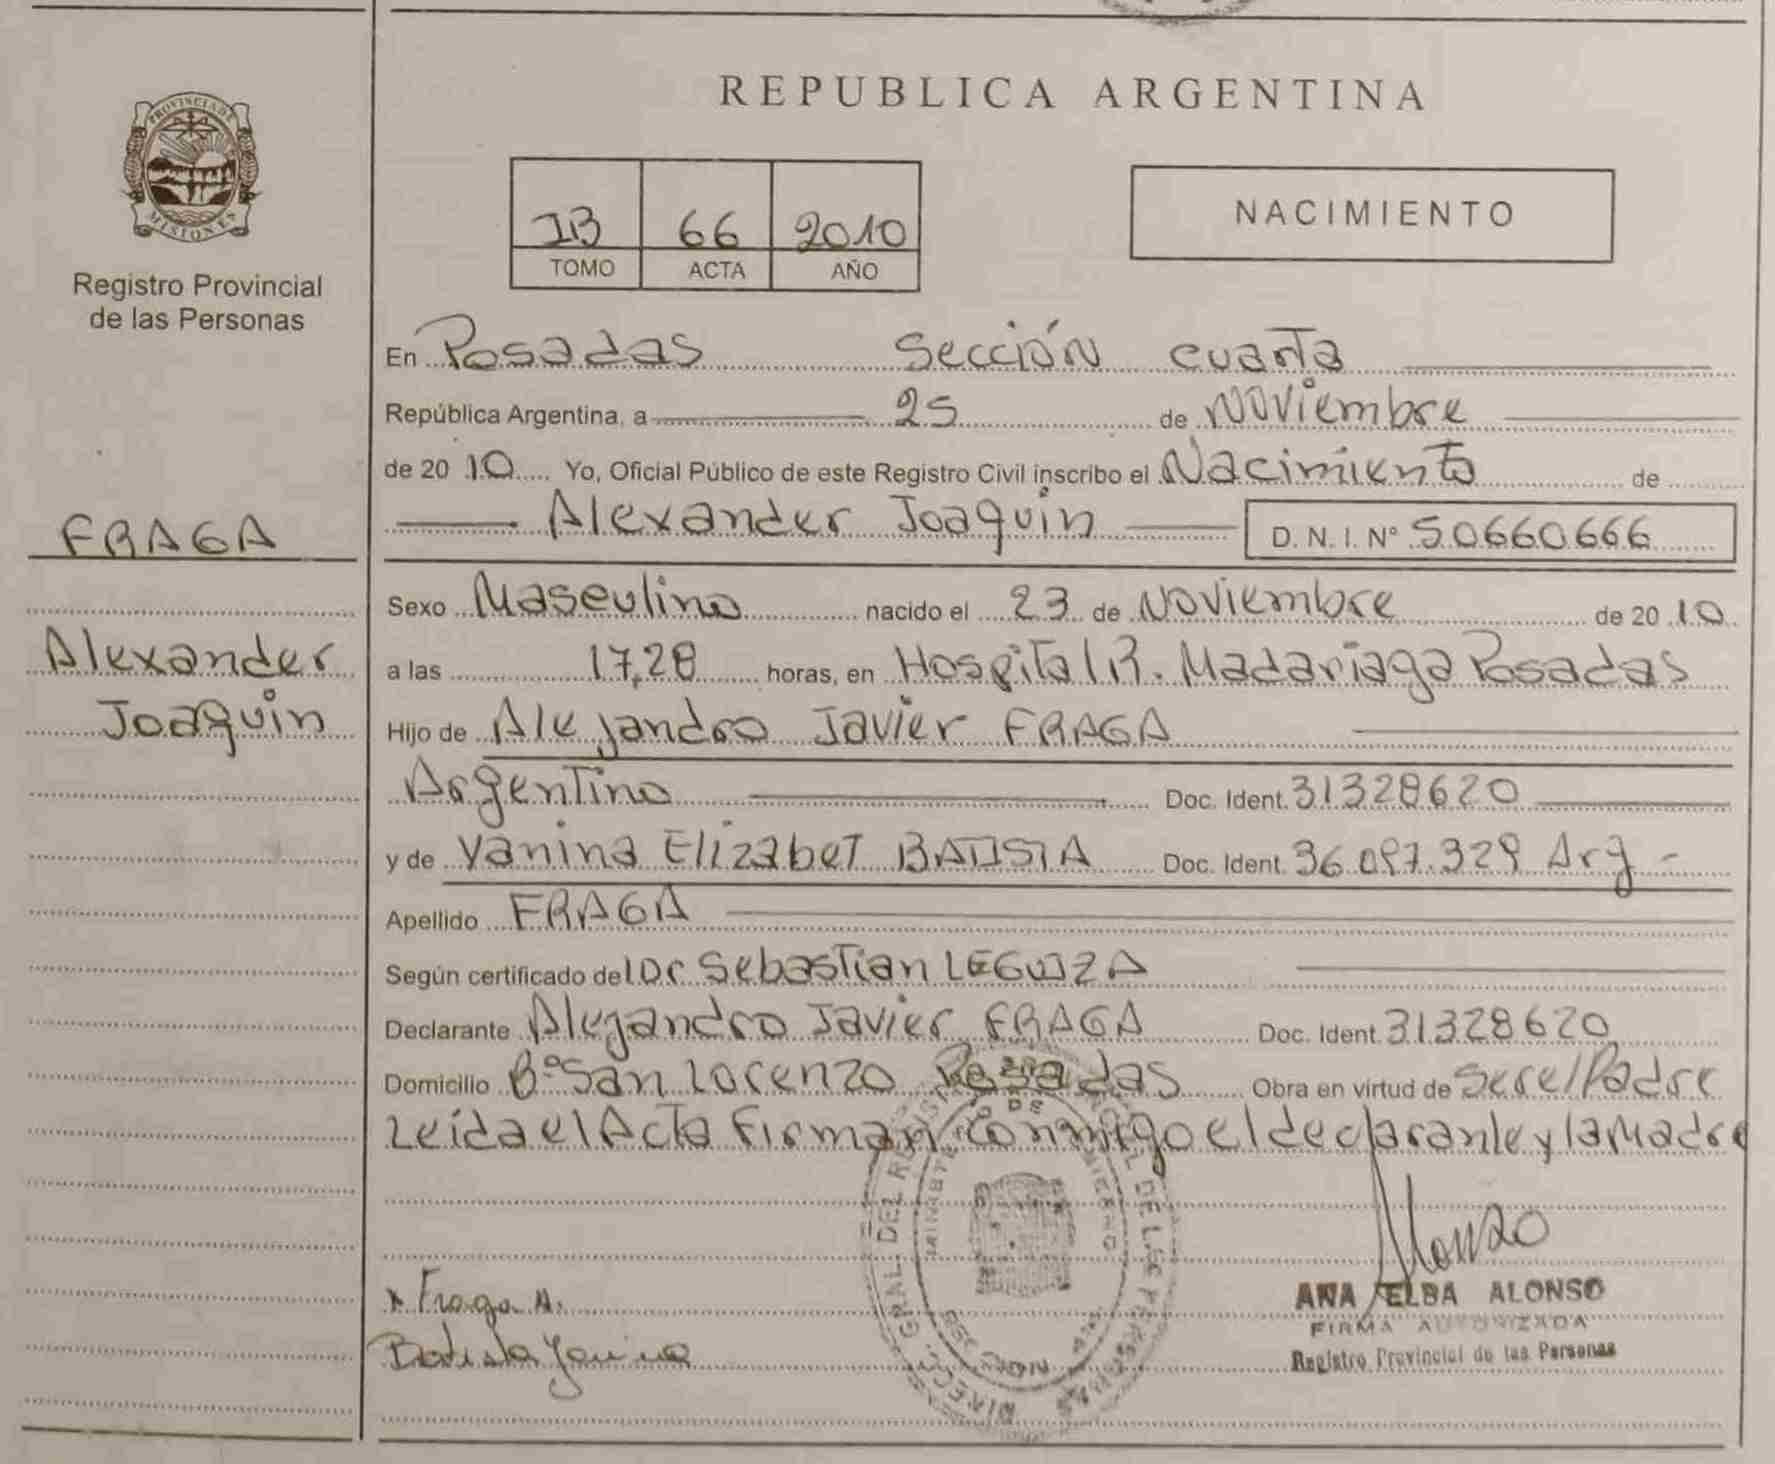 REPUBLICA ARGENTINA
PROVINCIA DE
MISIONES
Registro Provincial
de las Personas
IB 66 2010
TOMO ACTA AÑO
NACIMIENTO
En Posadas Sección cuarta
República Argentina, a 25 de Noviembre
de 2010 Yo, Oficial Público de este Registro Civil inscribo el Nacimiento de
Alexander Joaquin D. N. I. Nº 50660666
FRAGA
Alexander
Joaquin
Sexo Masculino nacido el 23 de Noviembre de 2010
a las 17,28 horas, en Hospital R. Madariaga Posadas
Hijo de Alejandro Javier FRAGA
Argentino Doc. Ident. 31328620
y de Yanina Elizabet BATISTA Doc. Ident. 36.097.329 Arg -
Apellido FRAGA
Según certificado del Dr Sebastian LEGUIZA
Declarante Alejandro Javier FRAGA Doc. Ident. 31328620
Domicilio Bº San Lorenzo Posadas Obra en virtud de ser el Padre
Leída el Acta Firman conmigo el declarante y la Madre
Alonso
ANA ELBA ALONSO
FIRMA AUTORIZADA
Registro Provincial de las Personas
x Fraga A.
Batista Yanina